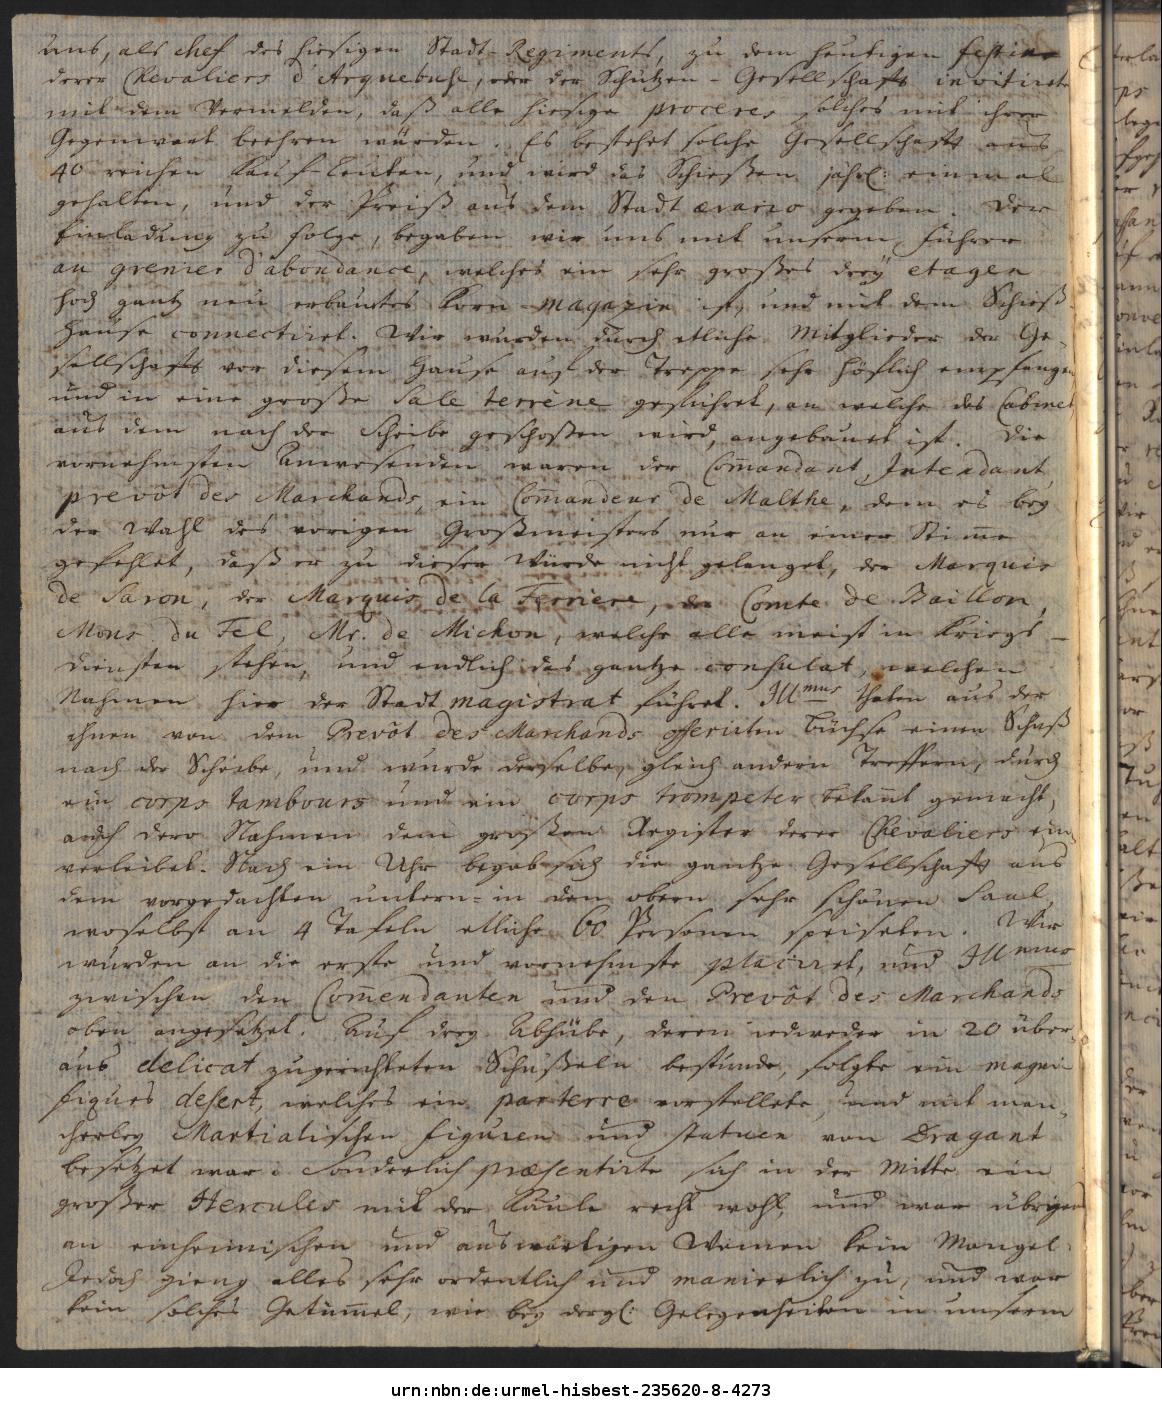 uns, als chef des hiesigen Stadt-Regiments, zu dem heutigen festin
derer Chevaliers d'Arquebuse, oder der Schützen-Gesellschafft invitirete
mit dem Vermelden, daß alle hiesige proceres solches mit ihrer
Gegenwart beehren würden. Es bestehet solche Gesellschafft aus
40 reichen Kauf-Leuten, und wird das Schießen jährl: einmal
gehalten, und der Preiß aus dem Stadt ærario gegeben. Der
Einladung zu folge, begaben wir uns mit unserm Führer
au grenier d'abondance, welches ein sehr großes drey etagen
hoch gantz neu erbautes Korn-magazin ist, und mit dem Schieß-
Hause connectiret. Wir wurden durch etliche Mitglieder der Ge-
sellschafft vor diesem Hause auf der Treppe sehr höflich empfangen
und in eine große Sale terrène geführet, an welche das Cabinet
aus dem nach der Scheibe geschoßen wird, angebauet ist. Die
vornehmsten Anwesenden waren der Com̄andant, Intendant
prevôt des Marchands, ein Com̄andeur de Malthe, dem es bey
der Wahl des vorigen Großmeisters nur an einer Stim̄e
gefehlet, daß er zu dieser Würde nicht gelanget, der Marquis
de Saron, der Marquis de la Ferriere, der Comte de Baillon,
Mons. du Fel, Mr. de Michon, welche alle meist in Kriegs-
diensten stehen, und endlich das gantze consulat, welchen
Nahmen hier der Stadt magistrat führet. Illmus thaten aus der
ihnen von dem Prevôt des Marchands offerirten Büchse einen Schuß
nach der Scheibe, und wurde derselbe, gleich andern Treffern, durch
ein corps tambours und ein corps trompeter bekan̄t gemacht,
auch dero Nahmen dem großen Register derer Chevaliers ein
verleibet. Nach ein Uhr begab sich die gantze Gesellschafft aus
dem vorgedachten untern- in den obern sehr schönen Saal,
woselbst an 4 Tafeln etliche 60 Personen speiseten. Wir
wurden an die erste und vornehmste placiret, und Illmus
zwischen den Com̄endanten und den Prevôt des Marchands
oben angesetzet. Auf drey Abhübe, deren iedweder in 20 über-
aus delicat zugerichteten Schüßeln bestunde, folgte ein magni-
fiques desert, welches ein parterre vorstellete, und mit man-
cherley Martialischen figuren und statuen von Dragant
besetzet war. Sonderlich præsentirte sich in der Mitte ein
großer Hercules mit der Käule recht wohl, und war übrigens
an einheimischen und auswärtigen Weinen kein Mangel.
Jedoch gieng alles sehr ordentlich und manierlich zu, und war
kein solches Getüm̄el, wie bey dergl: Gelegenheiten in unserm
urn:nbn:de:urmel-hisbest-235620-8-4273